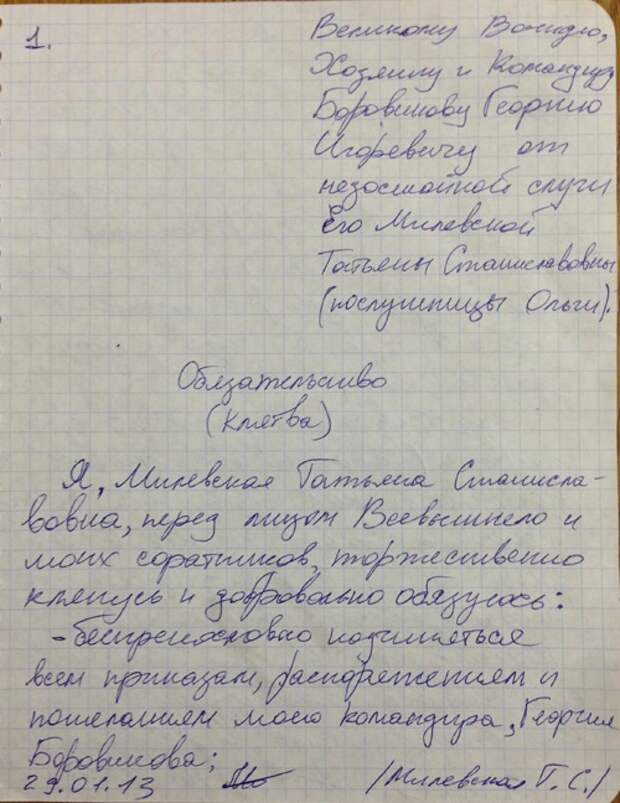 1.
Великому Вождю,
Хозяину и Командиру
Боровикову Георгию
Игоревичу от
недостойной слуги
Его Милевской
Татьяны Станиславовны
(послушницы Ольги).
Обязательство
(клятва)
Я, Милевская Татьяна Станисла-
вовна, перед лицом Всевышнего и
моих соратников, торжественно
клянусь и добровольно обязуюсь:
- беспрекословно подчиняться
всем приказам, распоряжениям и
пожеланиям моего командира, Георгия
Боровикова;
29.01.13 /Милевская Т.С./